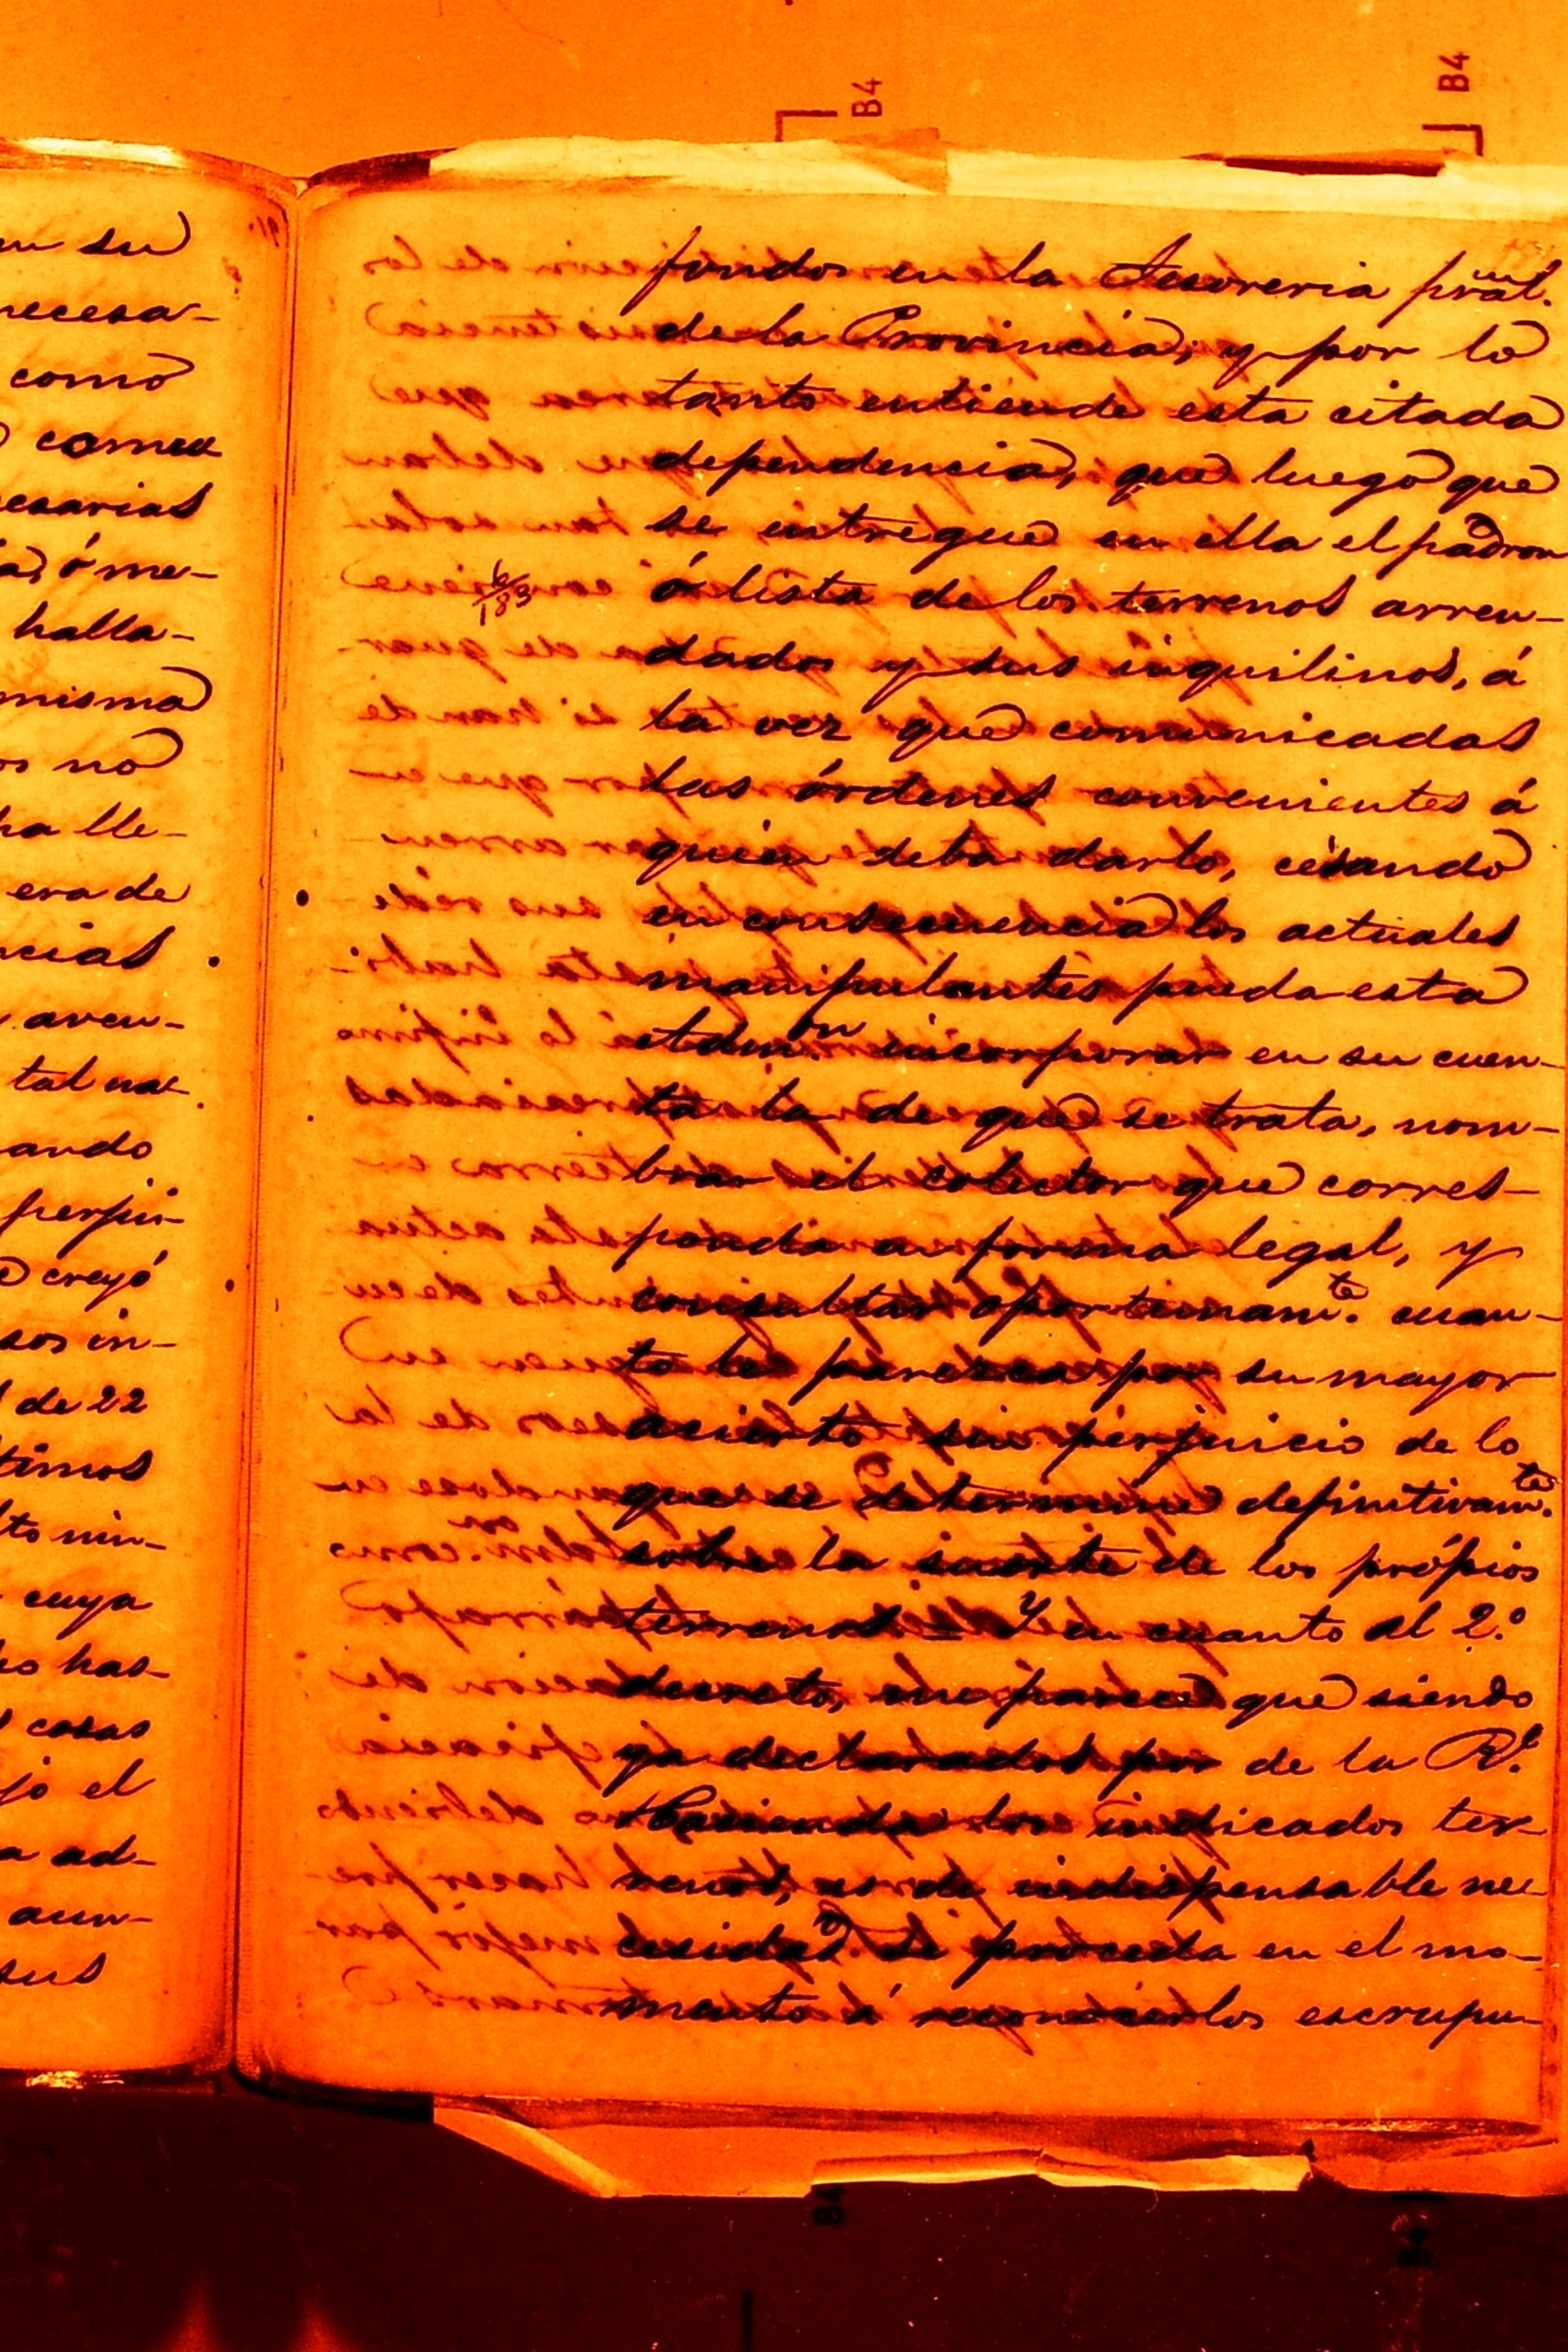 B4
B4
n su
necesa-
como
comer
cesarias
ó me-
halla-
misma
os no
ha lle-
era de
ncias
aven-
tal na-
ando
perjui-
creyó
sos in-
de 22
timos
to nin-
cuya
has-
cosas
jo el
a ad-
aun-
sus
fondos en la Tesoreria pral.
de la Provincia; y por lo
tanto entiende esta citada
dependencia, que luego que
se entregue en ella el padron
6/183
ó lista de los terrenos arren-
dados y sus inquilinos, á
la vez que comunicadas
las órdenes convenientes á
quien deba darlo, cesando
en consecuencia los actuales
manipulantes pueda esta
Admon. incorporar en su cuen-
ta la de que se trata, nom-
brar el colector que corres-
ponda en forma legal, y
consultar oportunamte. cuan-
to le parezca por su mayor
acierto sin perjuicio de lo
que se determine definitivamte.
sobre la suerte de los própios
terrenos = Y en cuanto al 2.º
decreto, me parece que siendo
ya declarados por de la Rl.
Hacienda los indicados ter-
renos, es de indispensable ne-
cesidad, se proceda en el mo-
mento á reconocerlos escrupu-
B4
B4